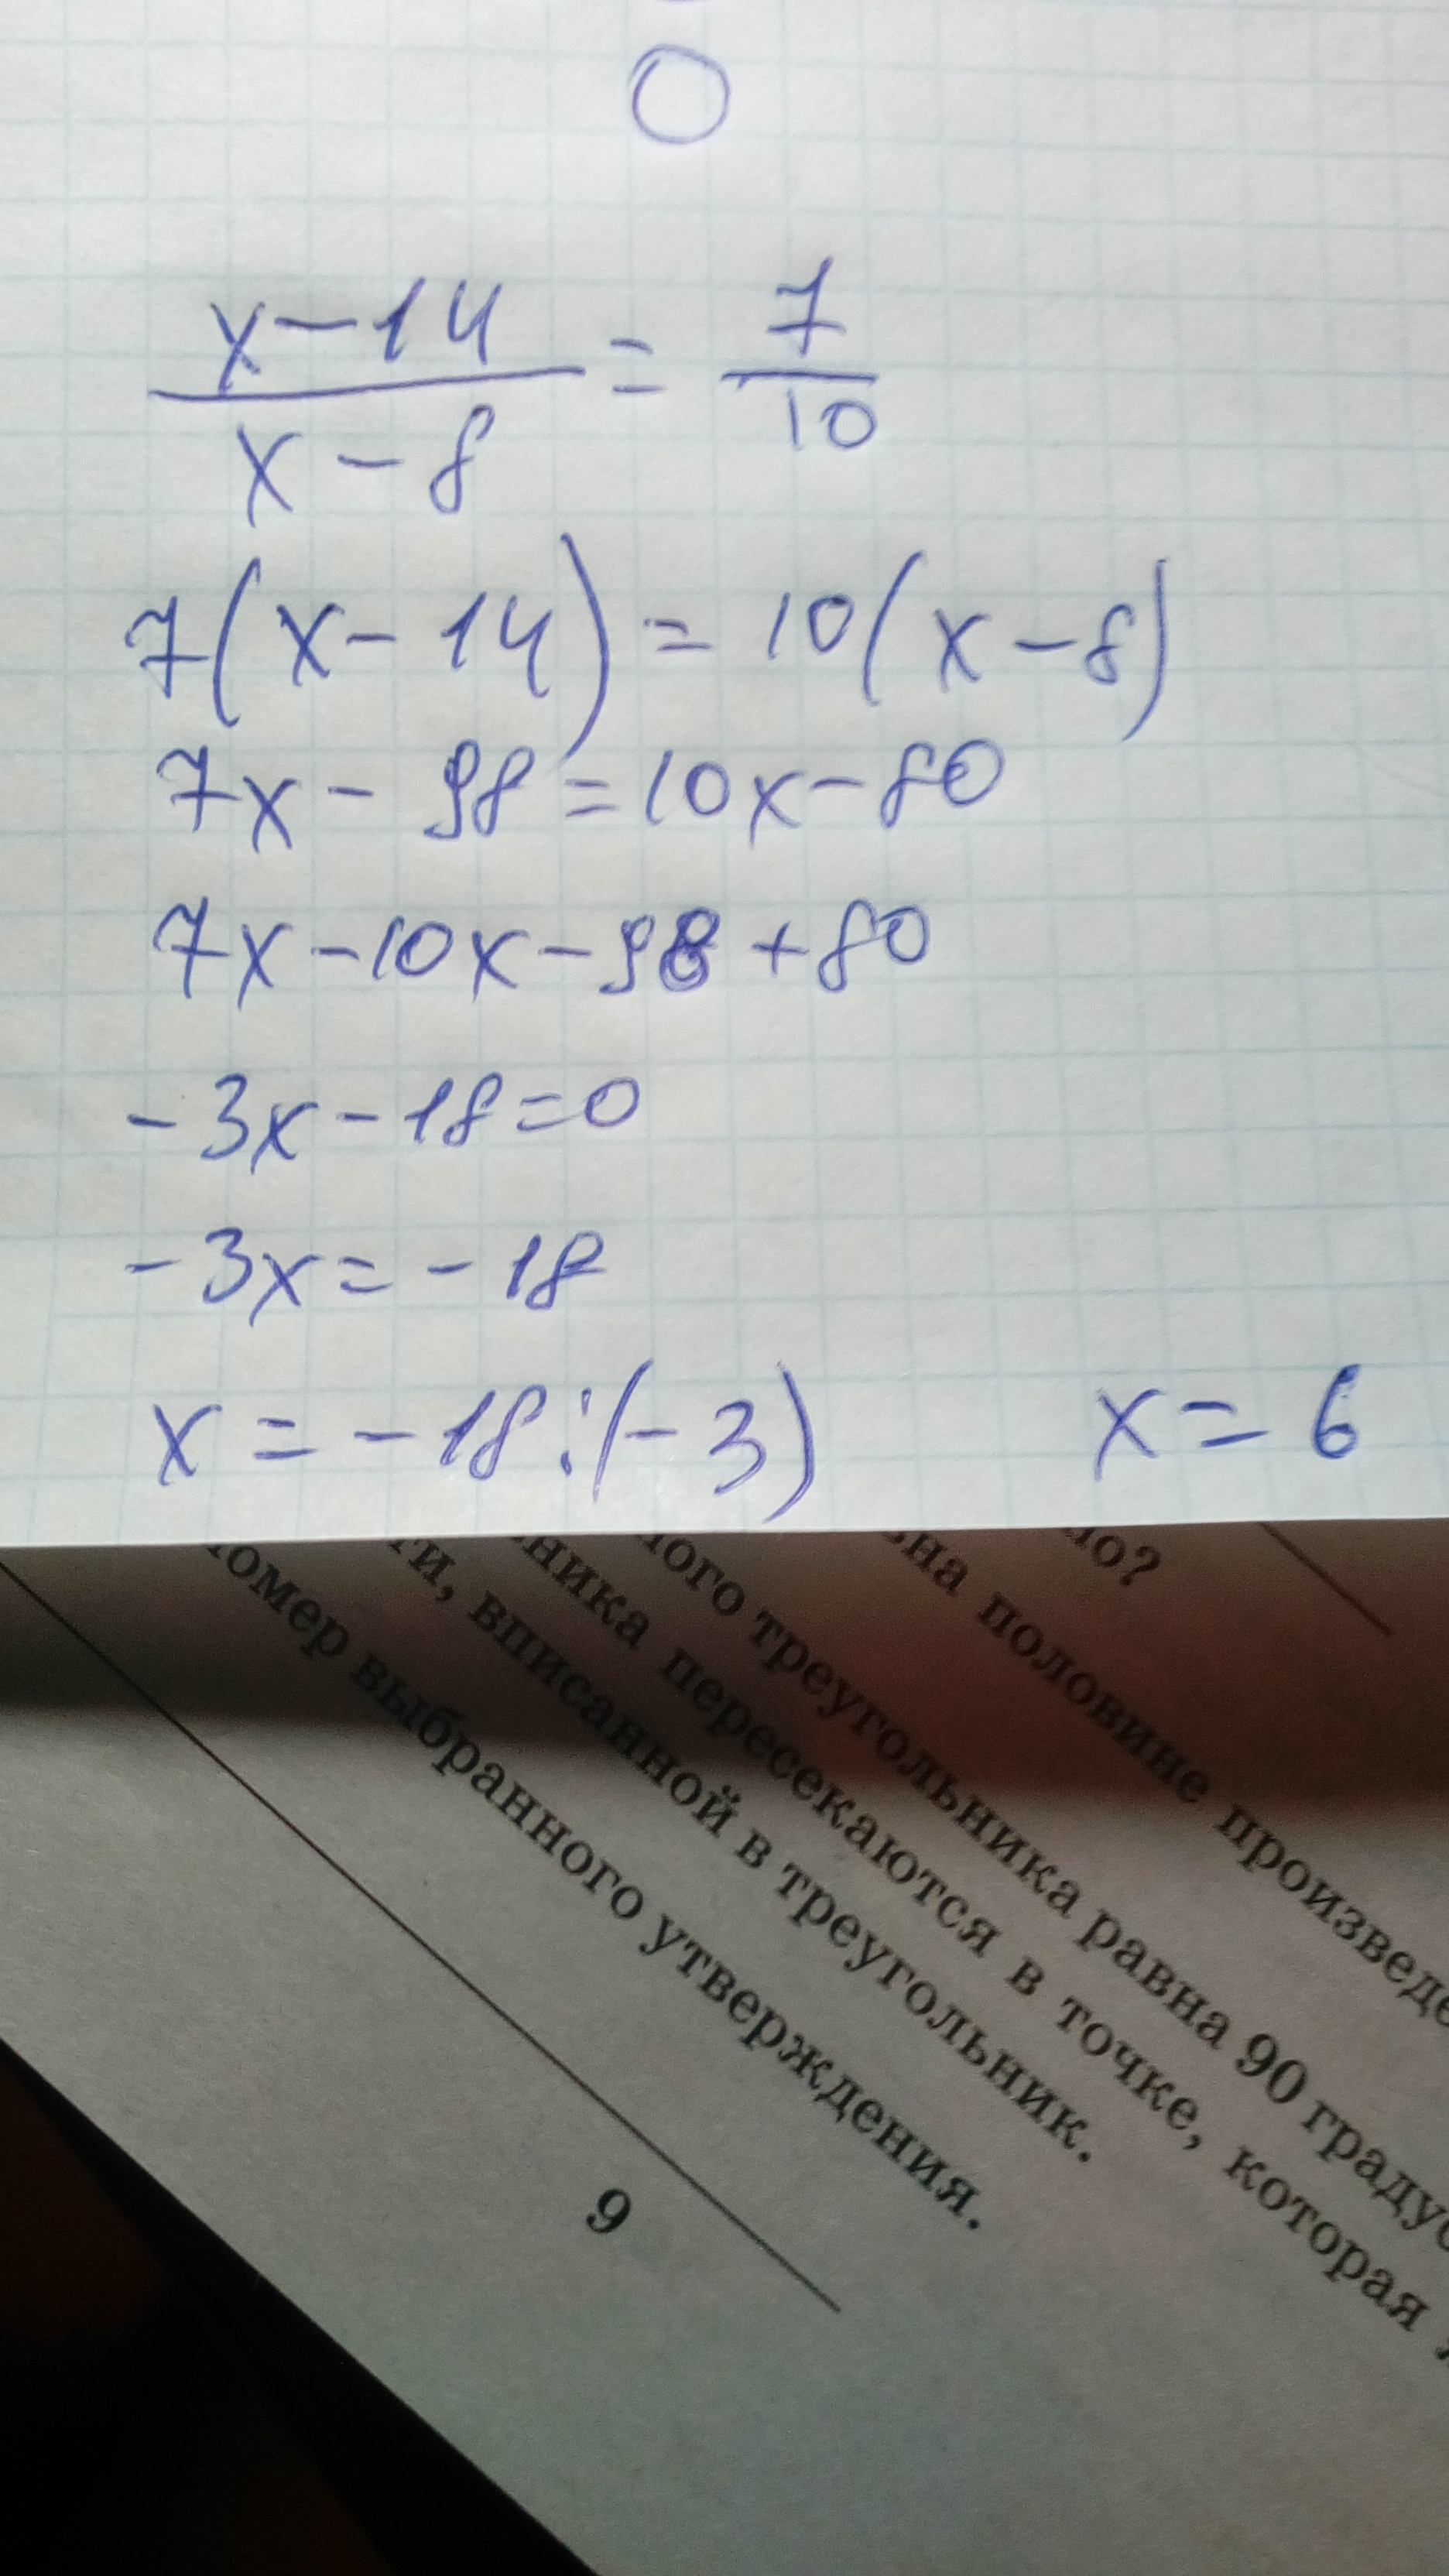 O
x-14/x-8 = 7/10
7(x-14) = 10(x-8)
7x - 98 = 10x - 80
7x - 10x - 98 + 80
-3x - 18 = 0
-3x = -18
x = -18:(-3) x = 6
но?
вна половине произведе
ного треугольника равна 90 градус
ника пересекаются в точке, которая
ти, вписанной в треугольник.
номер выбранного утверждения.
9